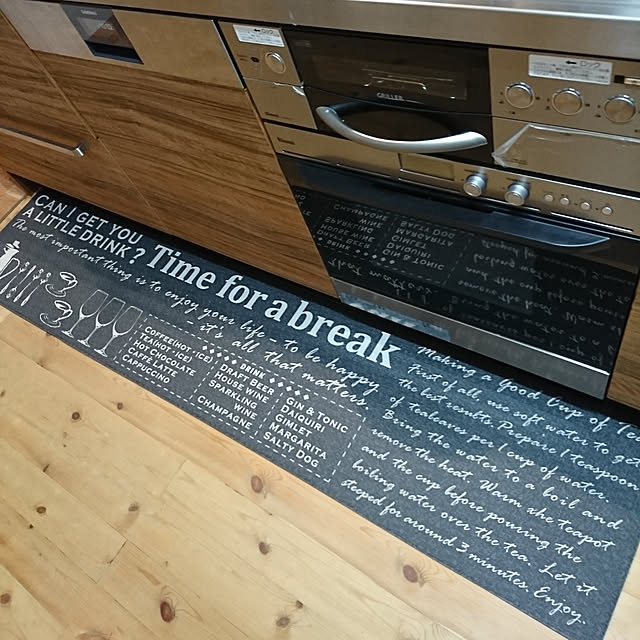 ロック
ロック
GRILLER
CAN I GET YOU
A LITTLE DRINK?
the most important thing is to enjoy your life - to be happy
- it's all that matters
Time for a break
COFFEE(HOT·ICE)
TEA(HOT·ICE)
HOT CHOCOLATE
CAFFE LATTE
CAPPUCCINO
DRINK
DRAFT BEER
HOUSE WINE
SPARKLING
WINE
CHAMPAGNE
GIN & TONIC
DAIQUIRI
GIMLET
MARGARITA
SALTY DOG
Making a Good Cup of Te
First of all, use soft water to get
the best results. Prepare 1 teaspoon
of tealeaves per 1 cup of water.
Bring the water to a boil and
remove the heat. Warm xhe teapot
and the cup before pouring the
boiling water over the tea. Let it
steeped for around 3 minutes. Enjoy.